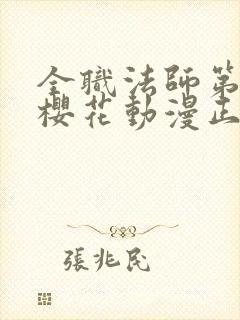 全職法師第
櫻花動漫正
張兆民